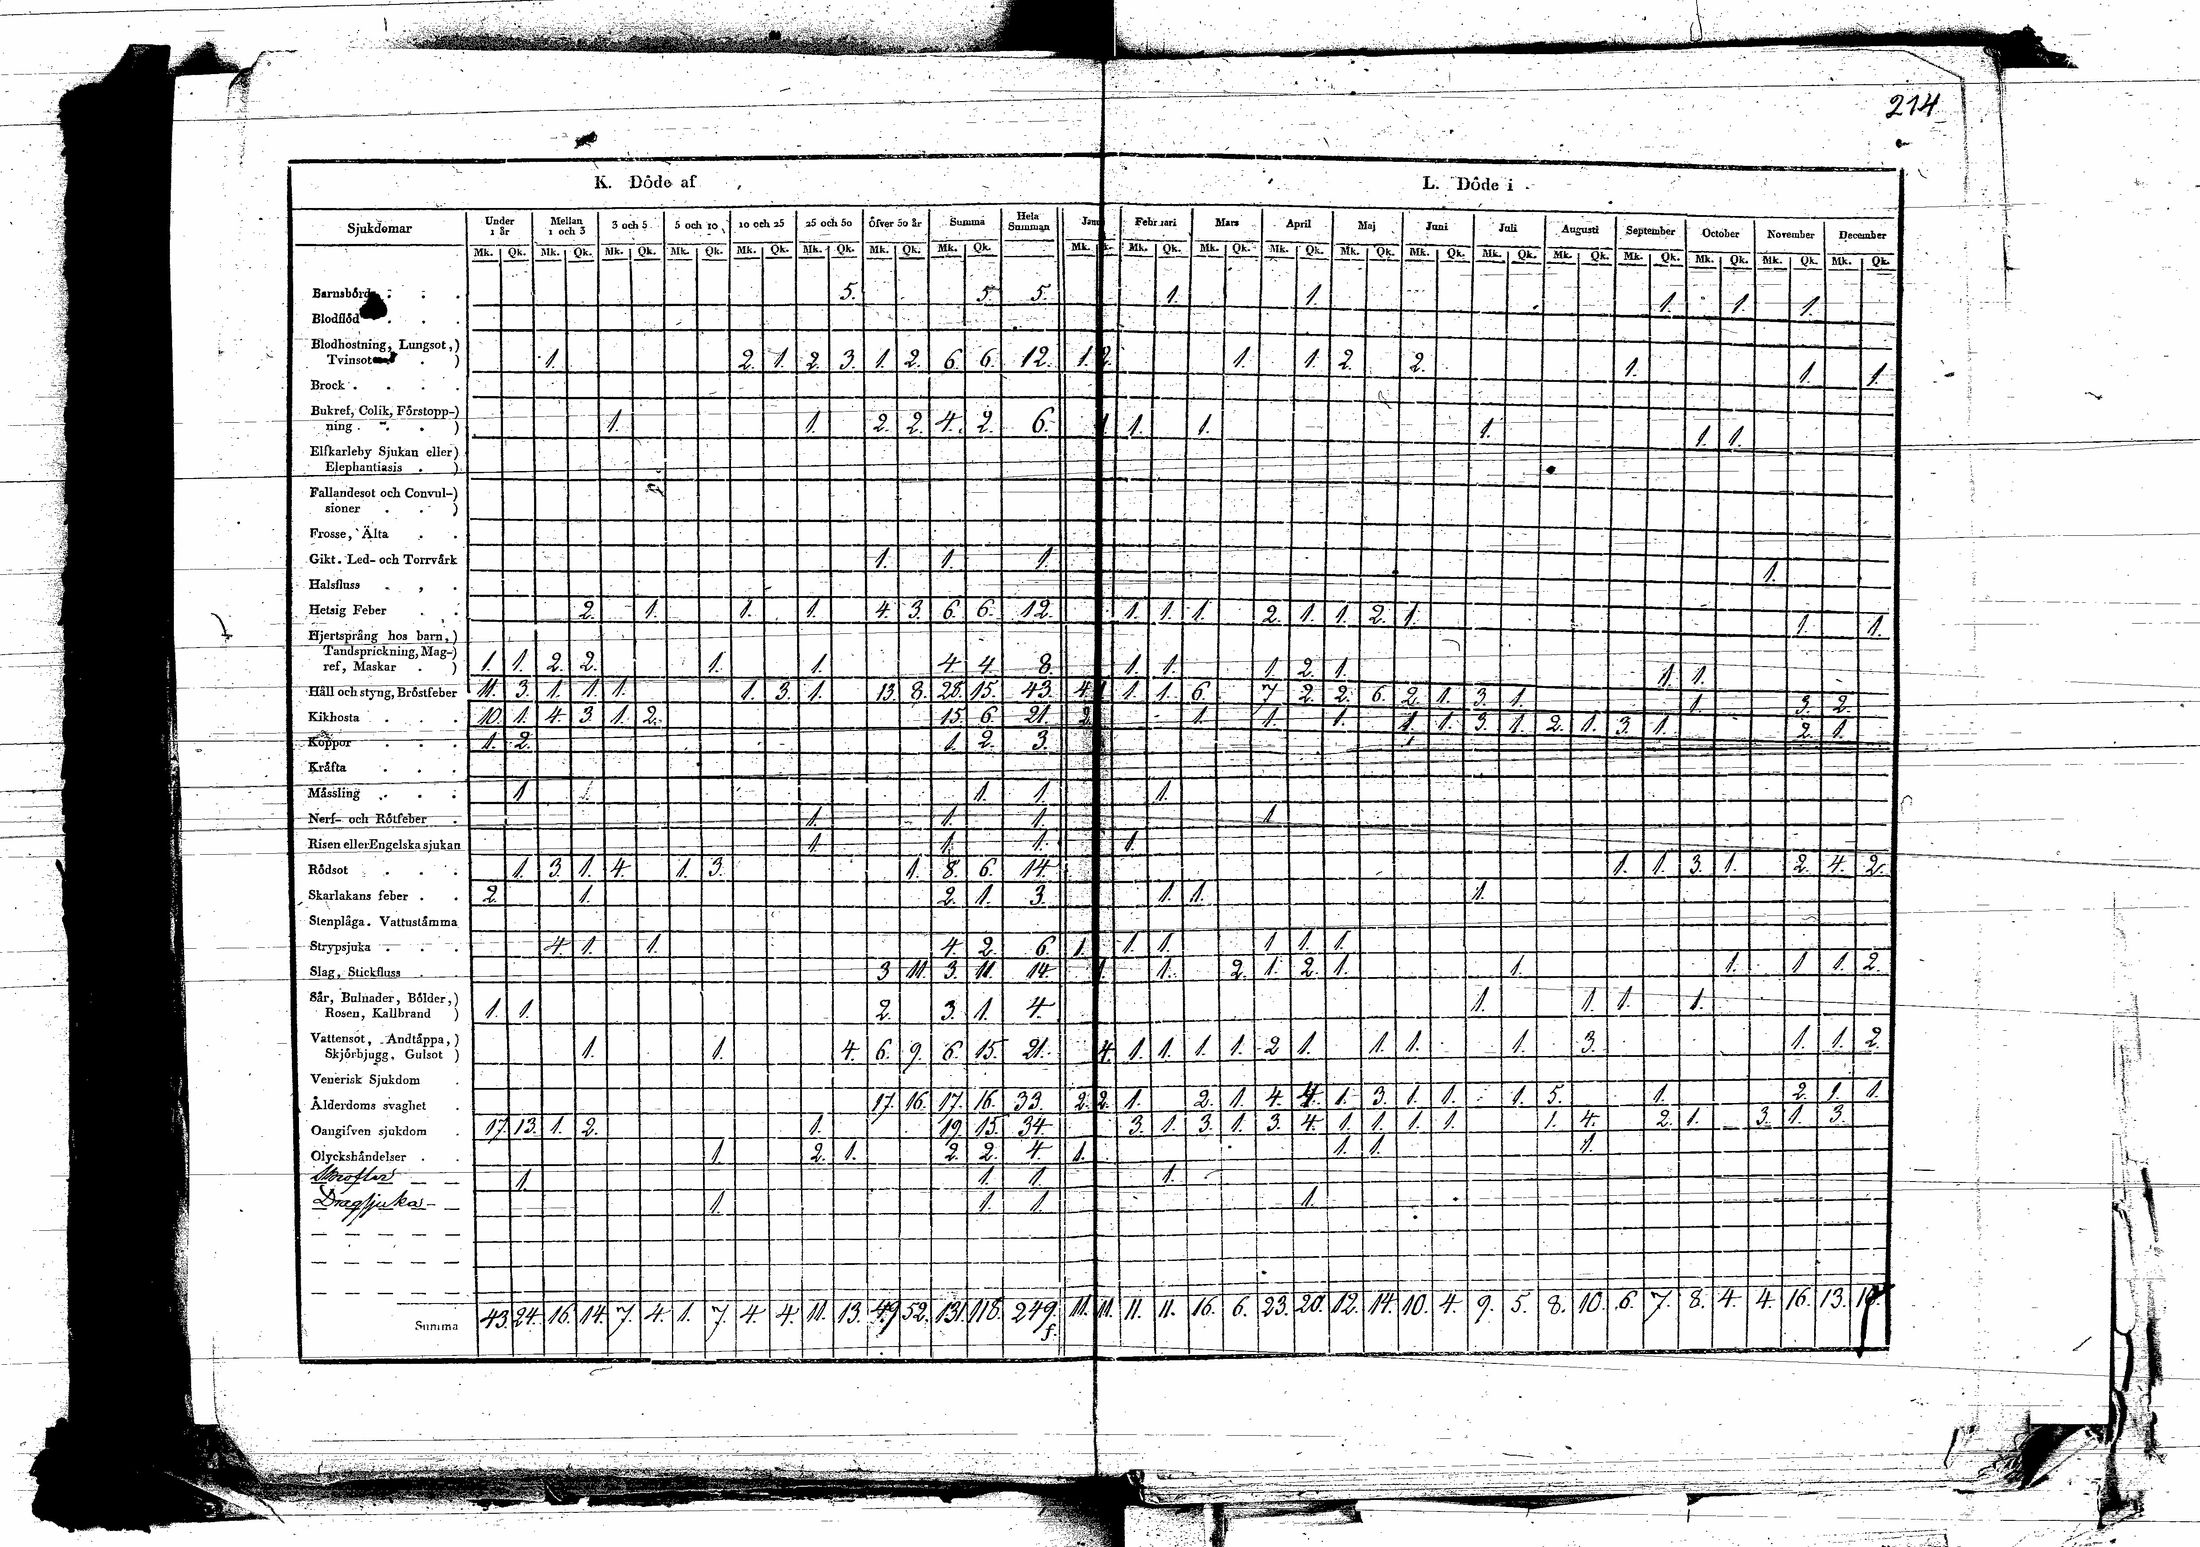 214
K. Döde af
L. Döde i
Sjukdomar Under 1 år Mellan 1 och 3 3 och 5 5 och 10 10 och 25 25 och 50 Öfver 50 år Summa Hela Summan Februari Mars April Maj Juni Juli Augusti September October November December
Mk. Qk. Mk. Qk. Mk. Qk. Mk. Qk. Mk. Qk. Mk. Qk. Mk. Qk. Mk. Qk. Mk. Mk. Qk. Mk. Qk. Mk. Qk. Mk. Qk. Mk. Qk. Mk. Qk. Mk. Qk. Mk. Qk. Mk. Qk. Mk. Qk. Mk. Qk.
Barnsbörd 5. 5 5. 1. 1. 1. 1. 1.
Blodflöd
Blodhostning, Lungsot,)
Tvinsot ) 1. 2. 1. 2. 3. 1. 2. 6. 6. 12. 1. 2. 1. 1. 2. 2. 1. 1. 1.
Brock
Bukref, Colik, Förstopp-)
ning ) 1. 1. 2. 2. 4. 2. 6. 1. 1. 1. 1. 1. 1.
Elfkarleby Sjukan eller)
Elephantiasis )
Fallandesot och Convul-)
sioner )
Frosse, Älta
Gikt. Led- och Torrvärk 1. 1. 1. 1.
Halsfluss
Hetsig Feber 2. 1. 1. 1. 4. 3. 6. 6. 12. 1. 1. 1. 2. 1. 1. 2. 1. 1. 1.
Hjertsprång hos barn,)
Tandsprickning, Mag-)
ref, Maskar ) 1. 1. 2. 2. 1. 1. 4. 4. 8. 1. 1. 1. 2. 1. 1. 1.
Håll och styng, Bröstfeber 11. 3. 1. 1. 1. 1. 3. 1. 13. 8. 28. 15. 43. 4. 1 1. 1. 6. 7 2. 2. 6. 2. 1. 3. 1. 1. 3. 2.
Kikhosta 10. 1. 4. 3. 1. 2. 15. 6. 21. 2. 1. 1. 1. 1. 1. 3. 1. 2. 1. 3. 1. 2. 1.
Koppor 1. 2. 1. 2. 3.
Kräfta
Mässling 1 1. 1. 1.
Nerf- och Rötfeber 1. 1. 1. 1
Risen eller Engelska sjukan 1. 1. 1. 1.
Rödsot 1. 3. 1. 4. 1. 3. 1. 8. 6. 14. 1. 1. 3. 1. 2. 4. 2.
Skarlakans feber 2. 1. 2. 1. 3. 1. 1. 1.
Stenplåga. Vattustämma
Strypsjuka 4. 1. 1. 4. 2. 6. 1. 1. 1. 1. 1. 1.
Slag, Stickfluss 3 11. 3. 11. 14. 1. 1. 2. 1. 2. 1. 1. 1. 1 1. 2.
Sår, Bulnader, Bölder,)
Rosen, Kallbrand ) 1. 1. 2. 3. 1. 4. 1. 1. 1. 1.
Vattensot, Andtäppa,)
Skjörbjugg, Gulsot ) 1. 1. 4. 6. 9. 6. 15. 21. 4. 1. 1. 1. 1. 2 1. 1. 1. 1. 3. 1. 1. 2.
Venerisk Sjukdom
Ålderdoms svaghet 17. 16. 17. 16. 33. 2. 2. 1. 2. 1. 4. 4. 1. 3. 1. 1. 1. 5. 1. 2. 1. 1.
Oangifven sjukdom 17. 13. 1. 2. 1. 19. 15. 34. 3. 1. 3. 1. 3. 4. 1. 1. 1. 1. 1. 4. 2. 1. 3. 1. 3.
Olyckshändelser 1. 2. 1. 2. 2. 4. 1. 1. 1. 1.
1. 1. 1. 1.
Dragsjuka 1. 1. 1. 1.
Summa 43. 24. 16. 14. 7. 4. 1. 7. 4. 4. 11. 13. 49 52. 131. 118. 249. 11. 11. 11. 11. 16. 6. 23. 20. 12. 14. 10. 4. 9. 5. 8. 10. 6. 7. 8. 4. 4. 16. 13.